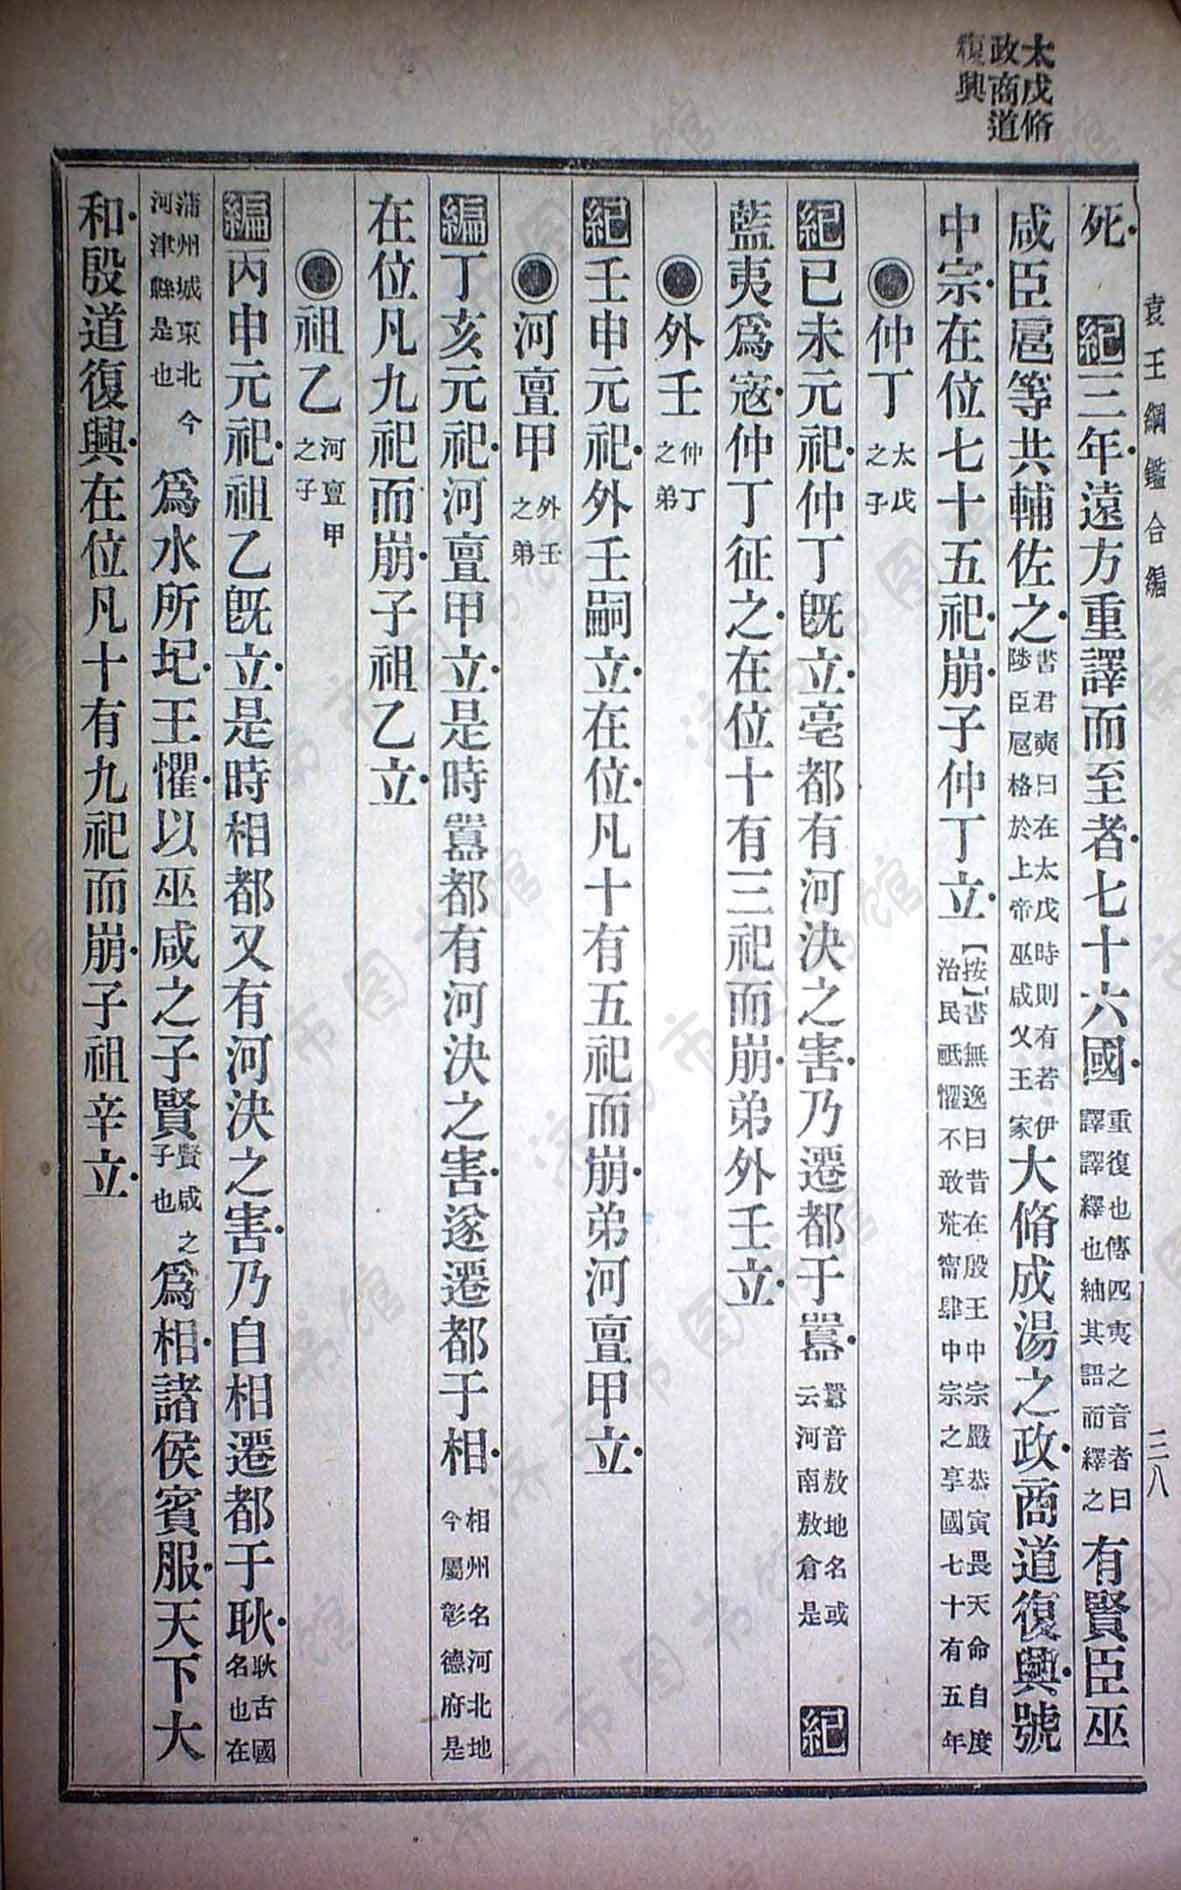 太戊脩
政商道
復興
袁王綱鑑合編
三八
死 紀三年遠方重譯而至者七十六國重復也傳四夷之音者曰譯譯繹也紬其語而繹之有賢臣巫
咸臣扈等共輔佐之書君奭曰在太戊時則有若伊陟臣扈格於上帝巫咸乂王家大脩成湯之政商道復興號
中宗在位七十五祀崩子仲丁立【按】書無逸曰昔在殷王中宗嚴恭寅畏天命自度治民祗懼不敢荒甯肆中宗之享國七十有五年
●仲丁太戊之子
紀已未元祀仲丁既立亳都有河決之害乃遷都于囂囂音敖地名或云河南敖倉是 紀
藍夷爲寇仲丁征之在位十有三祀而崩弟外壬立
●外壬仲丁之弟
紀壬申元祀外壬嗣立在位凡十有五祀而崩弟河亶甲立
●河亶甲外壬之弟
編丁亥元祀河亶甲立是時囂都有河決之害遂遷都于相相州名河北地今屬彰德府是
在位凡九祀而崩子祖乙立
●祖乙河亶甲之子
編丙申元祀祖乙既立是時相都又有河決之害乃自相遷都于耿耿古國名也在
蒲州城東北今河津縣是也爲水所圮王懼以巫咸之子賢賢咸之子也爲相諸侯賓服天下大
和殷道復興在位凡十有九祀而崩子祖辛立